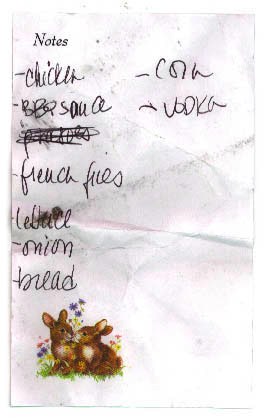 Notes
-chicken
-BBQ sauce
-french fries
-lettuce
-onion
-bread
-corn
-vodka